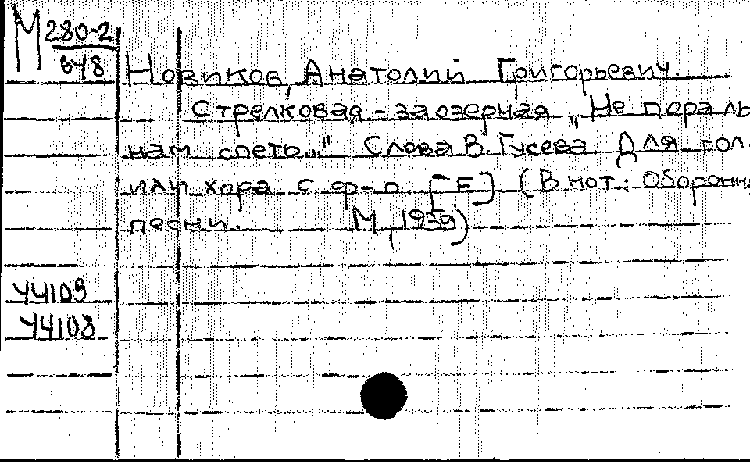 М 280-2
648
Новиков, Анатолий Григорьевич.
Стрелковая - заозерная „Не пора ль
нам спеть..." Слова В. Гусева. Для гол.
или хора с ф-п. [F] (В нот.: Оборонны
песни. М., 1939)
44109
44108